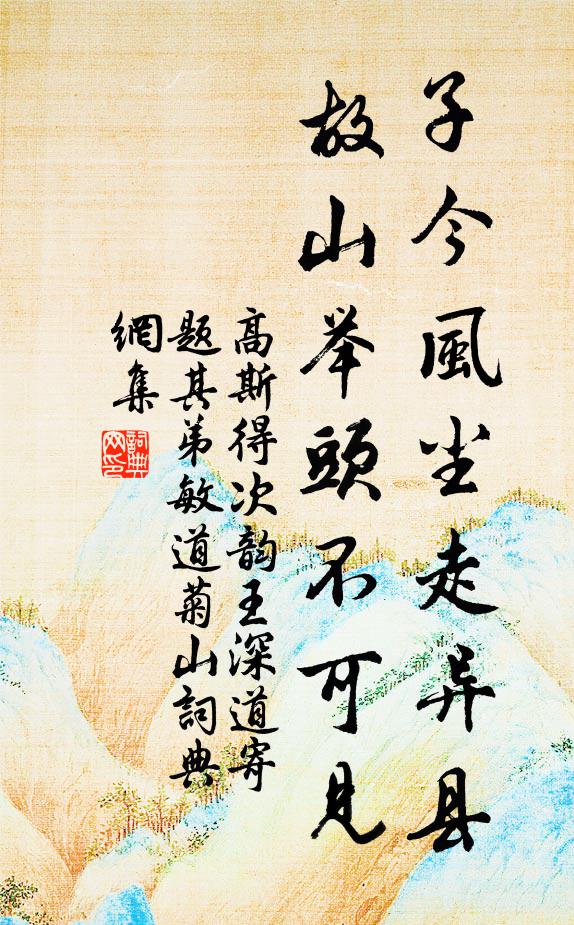 子今風尘走异县
故山举頭不可見
高斯得次韵王深道寄
题其弟敏道菊山詞典
網集
詞典网印